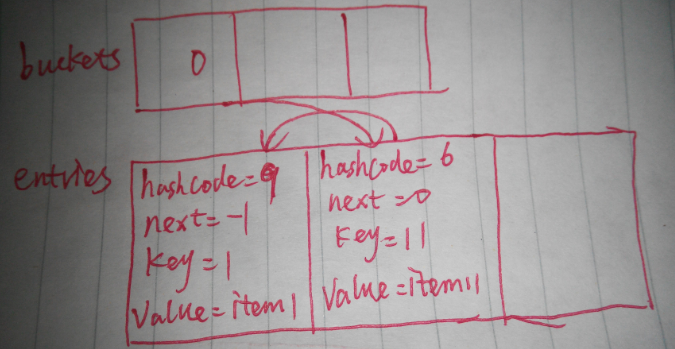 buckets 0
entries
hashcode=9
next=-1
key=1
Value=item1
hashcode=6
next=0
key=11
Value=item11